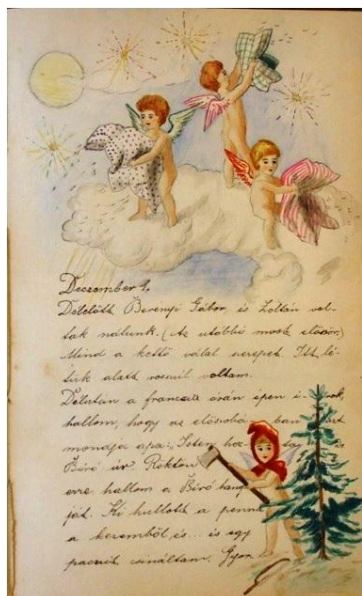 Deczember 4.
Délelőtt Berényi Gábor, és Zoltán vol-
tak nálunk. (Az utóbbi most először)
Mind a kettő vállal szerepet. Itt lé-
tük alatt rosszul voltam.
Délután a franczia órán épen
hallom, hogy az előszobában
mondja apa: Isten hoz
Báró úr. Rögtön
erre hallom a Báró hang-
ját. Ki hullott a penna
a kezemből és... és egy
pacznit csináltam. Gyor